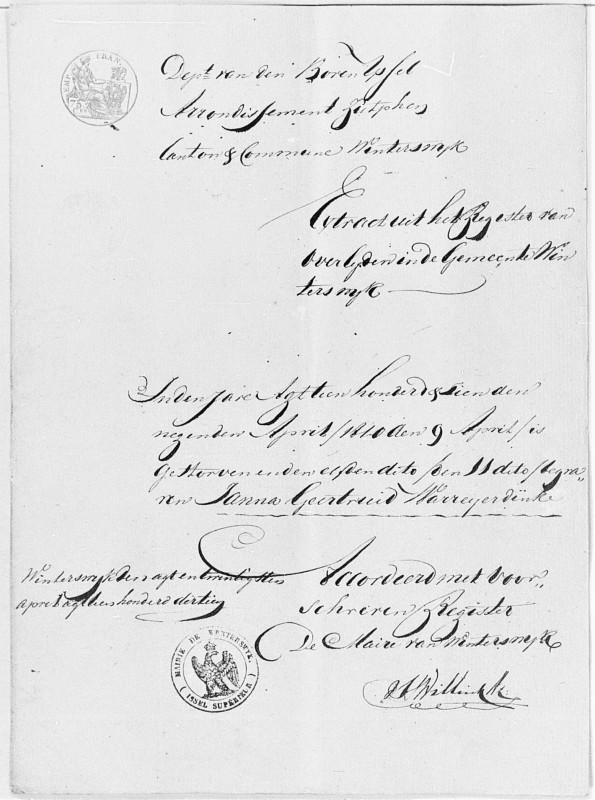 EMPIRE FRAN
Dept van den Boven Yssel
Arrondissement Zutphen
Canton & Commune Winterswyk
Extract uit het Register van
Overlyden in de Gemeente Win
terswyk
In den jare Agtteen honderd & tien den
negenden April /1810 den 9 April/ is
gestorven en den elfden dito /den 11 dito/ begra„
ven Janna Geertruid Warreyerdinke
Accordeerd met Voor„
schreven Register
De Maire van Winterswyk
Winterswyk den agt en twintigsten
april agtteen honderd dertien
MAIRIE DE WINTERSWYK
(ISSEL SUPERIEUR)
Willink